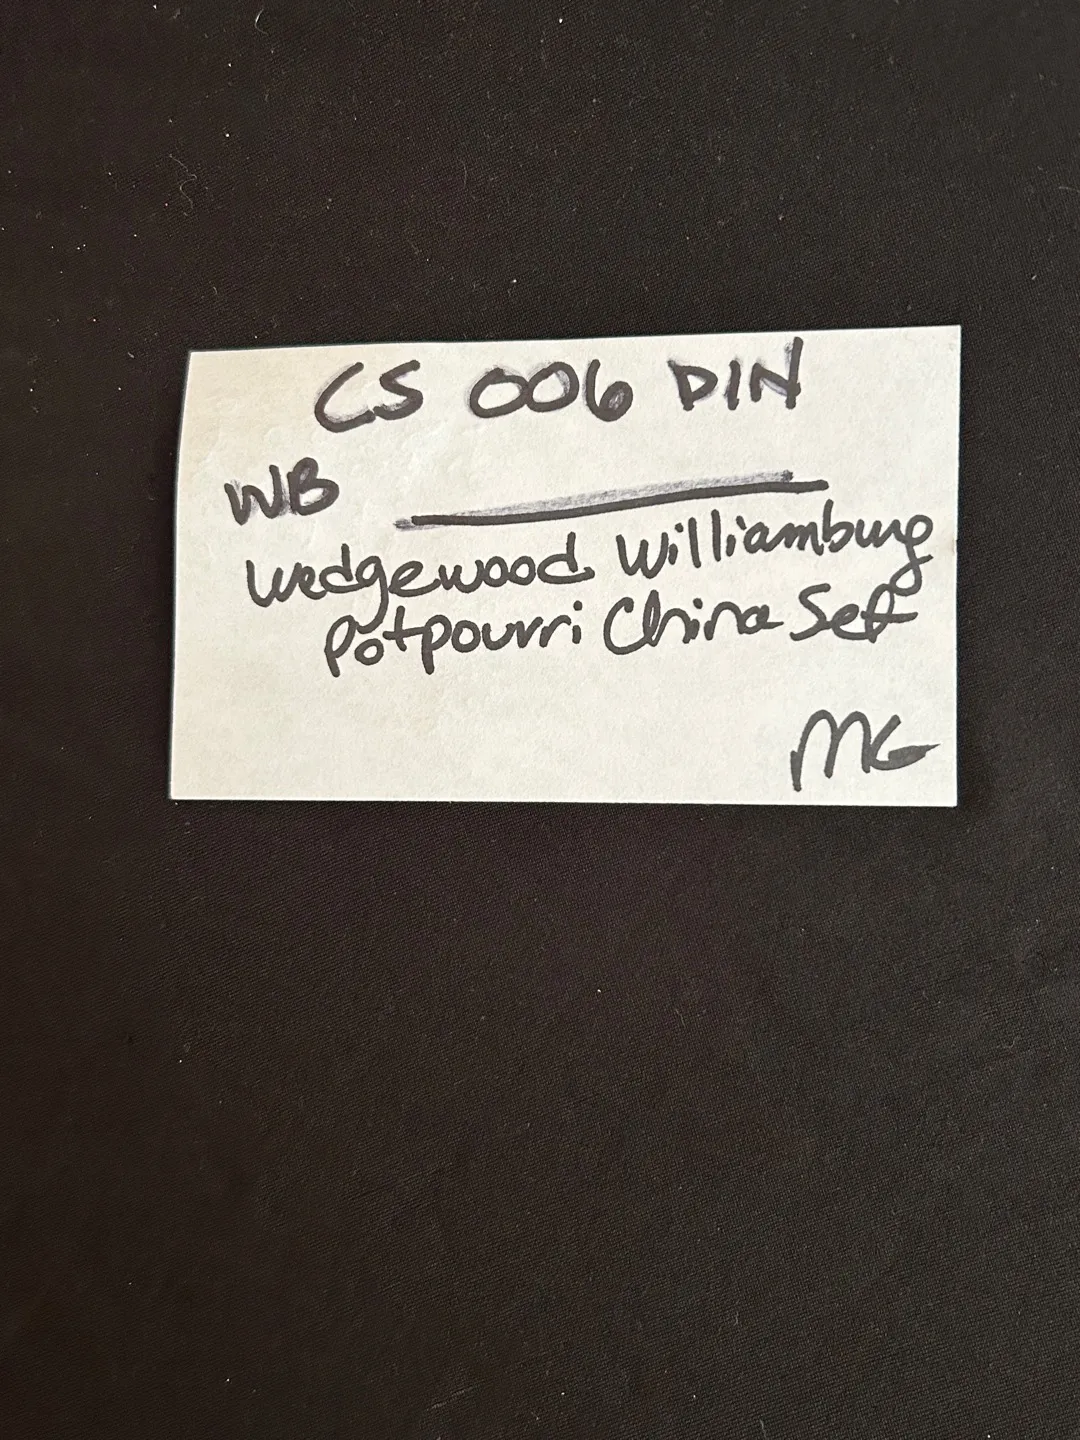 CS 006 DIN
WB
Wedgewood Williamburg
Potpourri China Set
MG